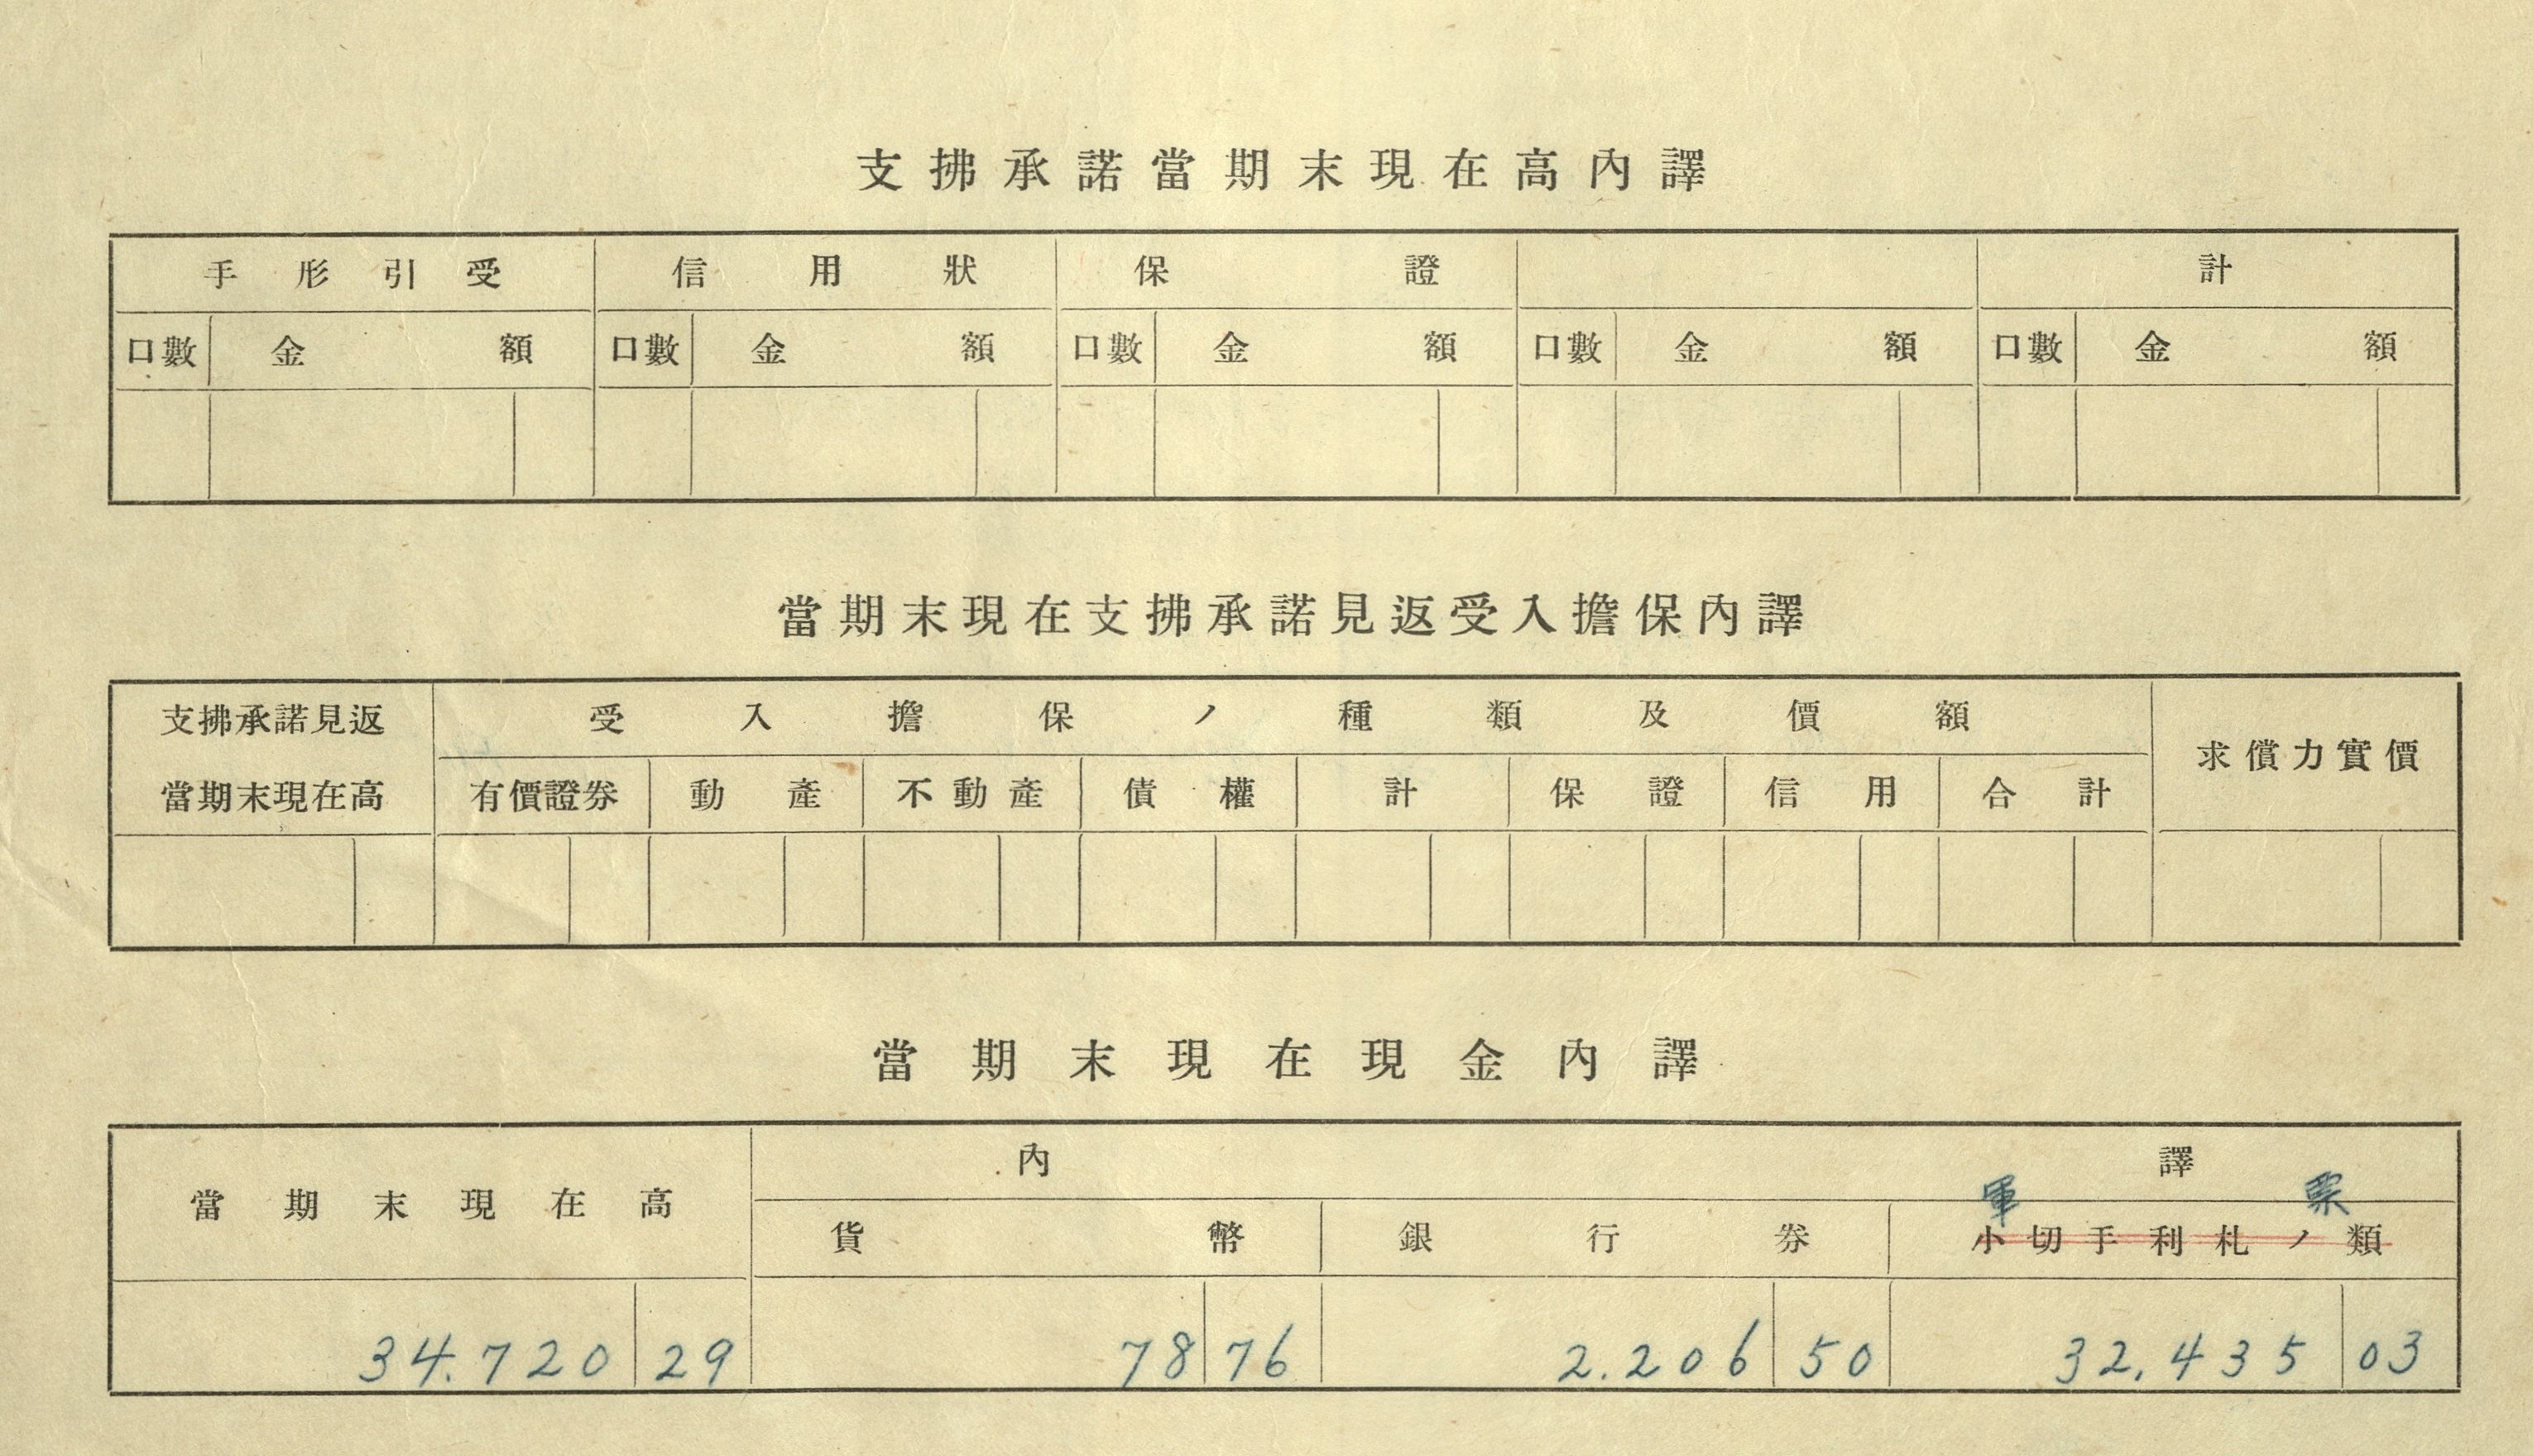 支拂承諾當期末現在高內譯
手形引受 信用狀 保證 計
口數 金額 口數 金額 口數 金額 口數 金額 口數 金額
當期末現在支拂承諾見返受入擔保內譯
支拂承諾見返 受入擔保ノ種類及價額
求償力實價
當期末現在高 有價證券 動產 不動產 債權 計 保證 信用 合計
當期末現在現金內譯
內譯
軍票
當期末現在高 貨幣 銀行券 小切手利札ノ類
34.720 29 78 76 2.206 50 32,435 03